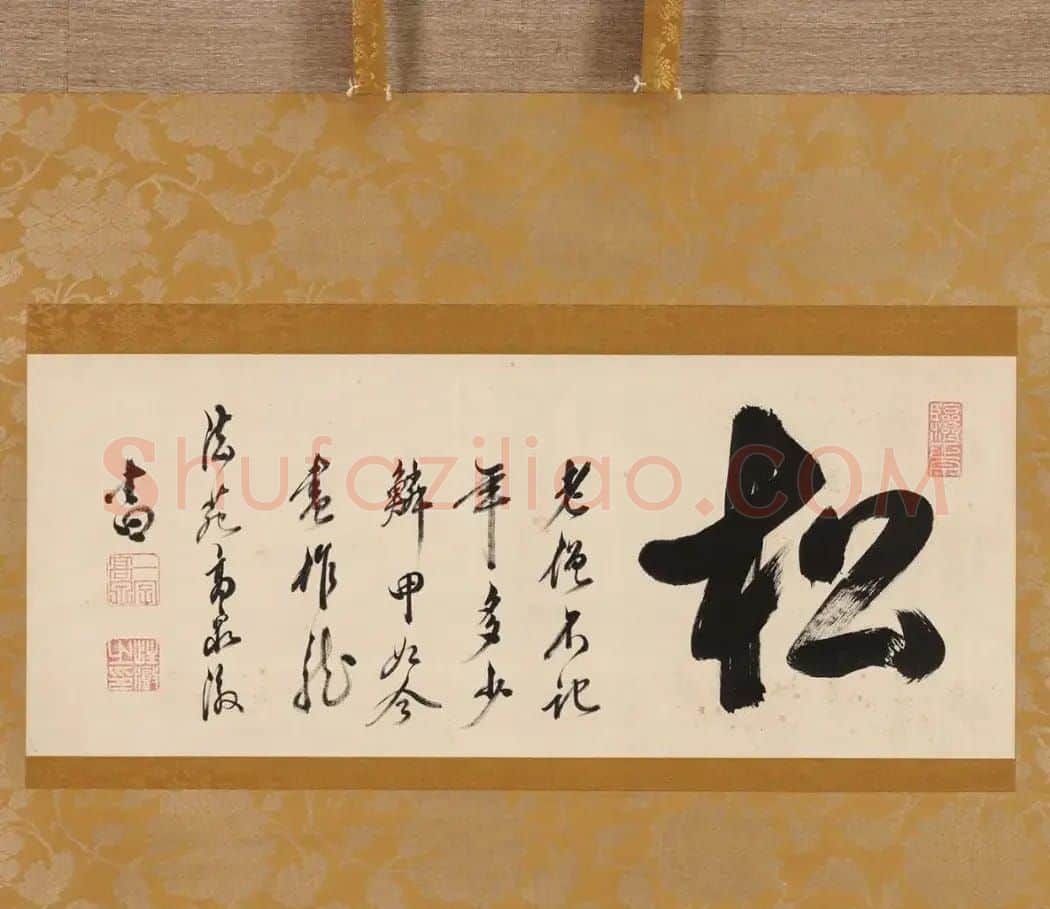 松
老僧不記
年多少
鱗甲如今
盡作龍
法苑高泉澂
書
Shufaziliao.COM